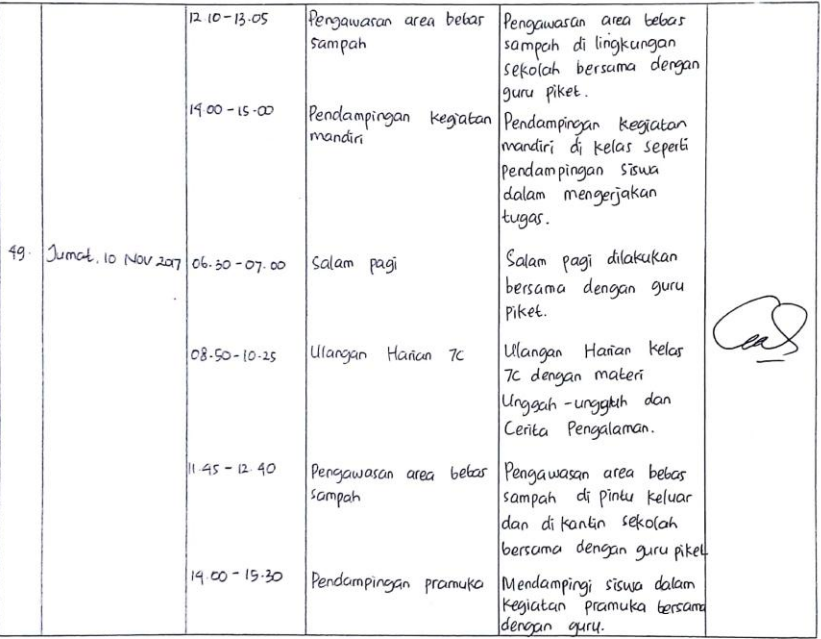 12.10-13.05
Pengawasan area bebas
sampah
Pengawasan area bebas
sampah di lingkungan
sekolah bersama dengan
guru piket.
14.00-15-00
Pendampingan kegiatan
mandiri
Pendampingan kegiatan
mandiri di kelas seperti
pendampingan siswa
dalam mengerjakan
tugas.
49.
Jumat, 10 Nov 2017
06.30-07.00
Salam pagi
Salam pagi dilakukan
bersama dengan guru
piket.
08.50-10.25
Ulangan Harian 7C
Ulangan Harian kelas
7C dengan materi
Unggah-ungguh dan
Cerita Pengalaman.
11.45-12.40
Pengawasan area bebas
sampah
Pengawasan area bebas
sampah di pintu keluar
dan di kantin sekolah
bersama dengan guru piket
14.00-15.30
Pendampingan pramuka
Mendampingi siswa dalam
kegiatan pramuka bersama
dengan guru.